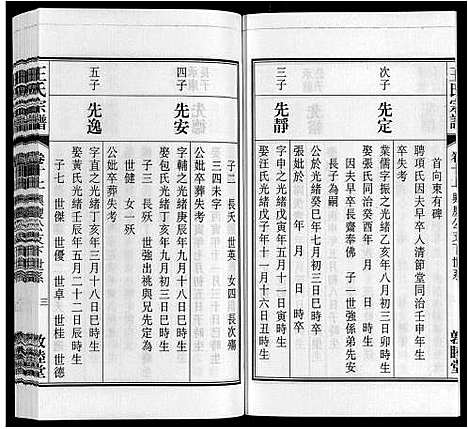 王氏宗譜
首向東有碑
次子
先定
聘項氏因夫早卒入清節堂同治壬申年生
卒失考
業儒字振之光緒乙亥年八月初三日卯時生
娶張氏同治癸酉年 月 日 時生
因夫早卒長齋奉佛 子一 世強係弟先安
長子為嗣
公於光緒癸巳年七月初三日巳時卒
張妣於 年 月 日 時卒
三子
先靜
字申之光緒戊寅年五月十一日寅時生
娶汪氏光緒戊子年十一月十六日丑時生
敦睦堂
子二 長殀 世英 女四 長次殤
三四未字
四子
先安
字輔之光緒庚辰年九月十八日巳時生
娶包氏光緒丁亥年九月初三日辰時生
子三 長殀 世強出祧與兄先定為
子 世健 女一殀
公妣卒葬失考
五子
先逸
字直之光緒丁亥年三月十八日巳時生
娶黃氏光緒壬辰年五月二十二日辰時生
公妣卒葬失考
子七 世傑 世優 世卓 世桂 世德
王氏宗譜
三
敦睦堂